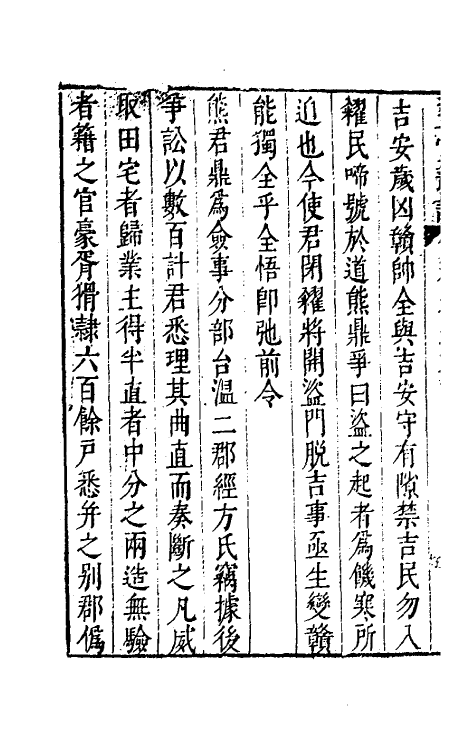 吉安歲凶贛帥全與吉安守有隙禁吉民勿入
糴民啼號於道熊鼎爭曰盜之起者爲饑寒所
迫也今使君閉糴將開盜門脫吉事亟生變贛
能獨全乎全悟卽弛前令
熊君鼎爲僉事分部台溫二郡經方氏竊據後
爭訟以數百計君悉理其曲直而奏斷之凡威
取田宅者歸業主得半直者中分之兩造無驗
者籍之官豪胥猾隸六百餘戸悉并之别郡僞